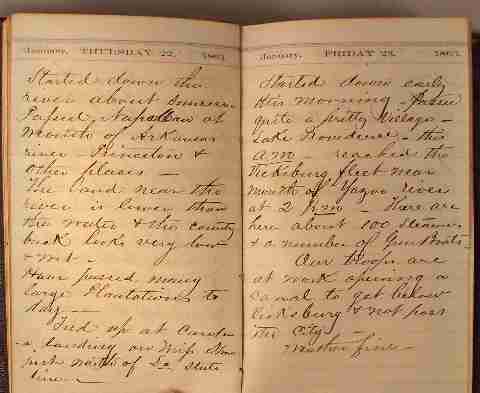 January, THURSDAY 22, 1863.
Started down the
river about sunrise
Passed Napoleon at
Mouth of Arkansas
river - Princeton &
other places -
The land near the
river is lower than
the water & the country
back looks very low
& wet -
Have passed many
large Plantations to
day -
Tied up at
a landing on Miss. Shore
just north of La. state
line -
January, FRIDAY 23, 1863.
Started down early
this morning - passed
quite a pretty village -
Lake Providence - this
A.M. - reached the
Vicksburg fleet near
mouth of Yazoo river
at 2 P.M. - There are
here about 100 Steamers
& a number of Gun Boats.
Our troops are
at work opening a
canal to get below
Vicksburg & not pass
the City -
Weather fine -